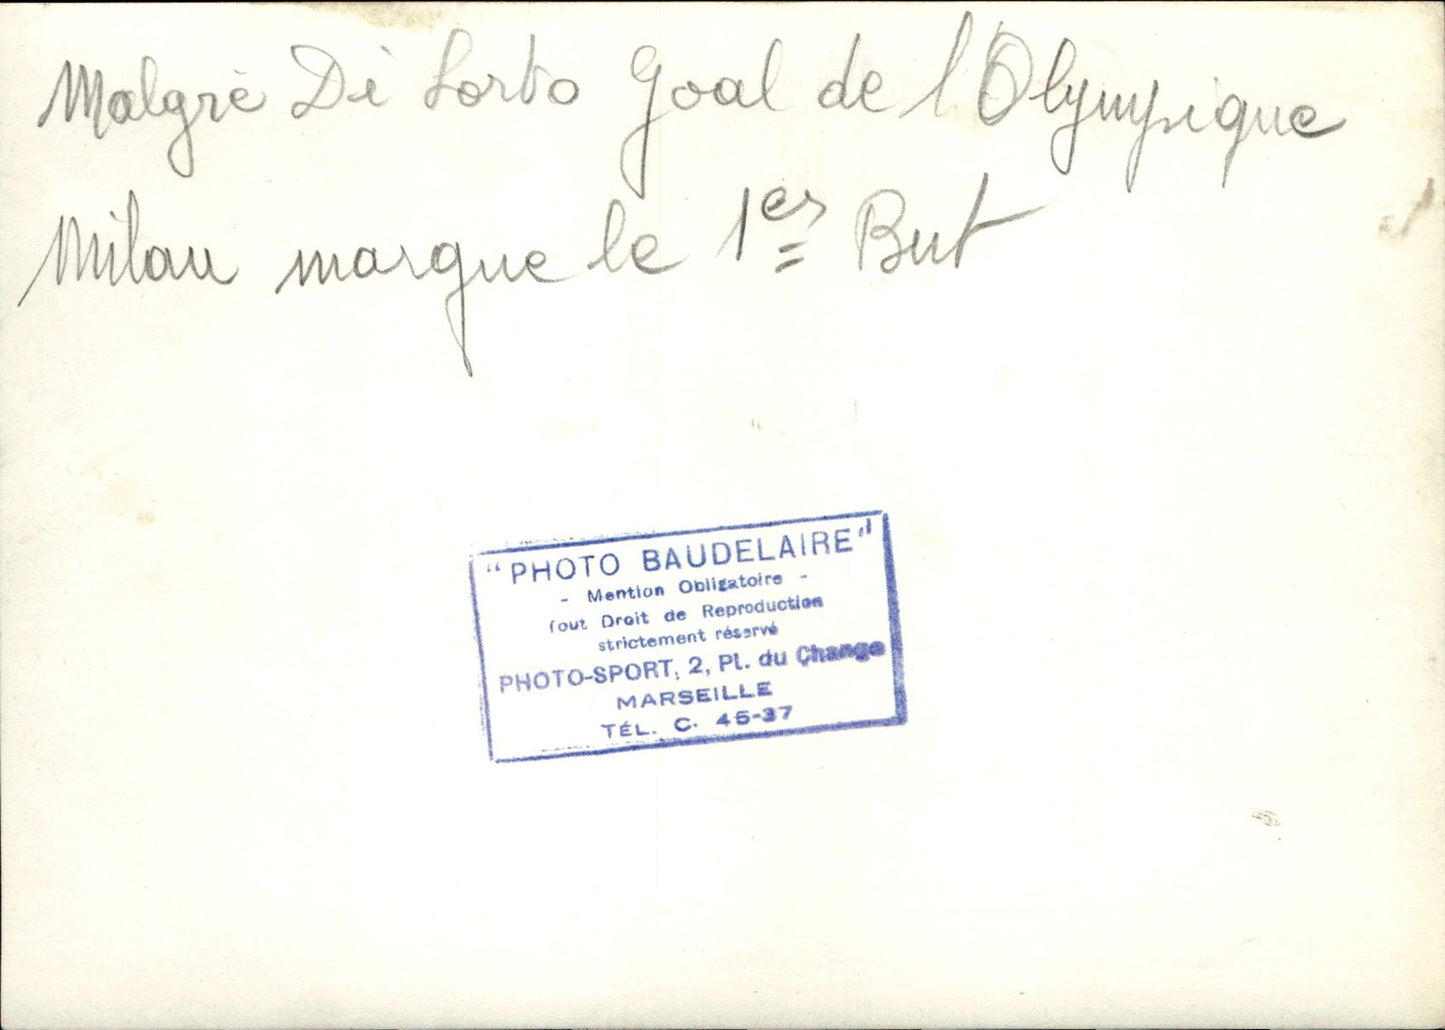 Malgré Di Lorto Goal de l'Olympique
Milau marque le 1er But
"PHOTO BAUDELAIRE"
- Mention Obligatoire -
Tout Droit de Reproduction
strictement réservé
PHOTO-SPORT, 2, Pl. du Change
MARSEILLE
TÉL. C. 45-37